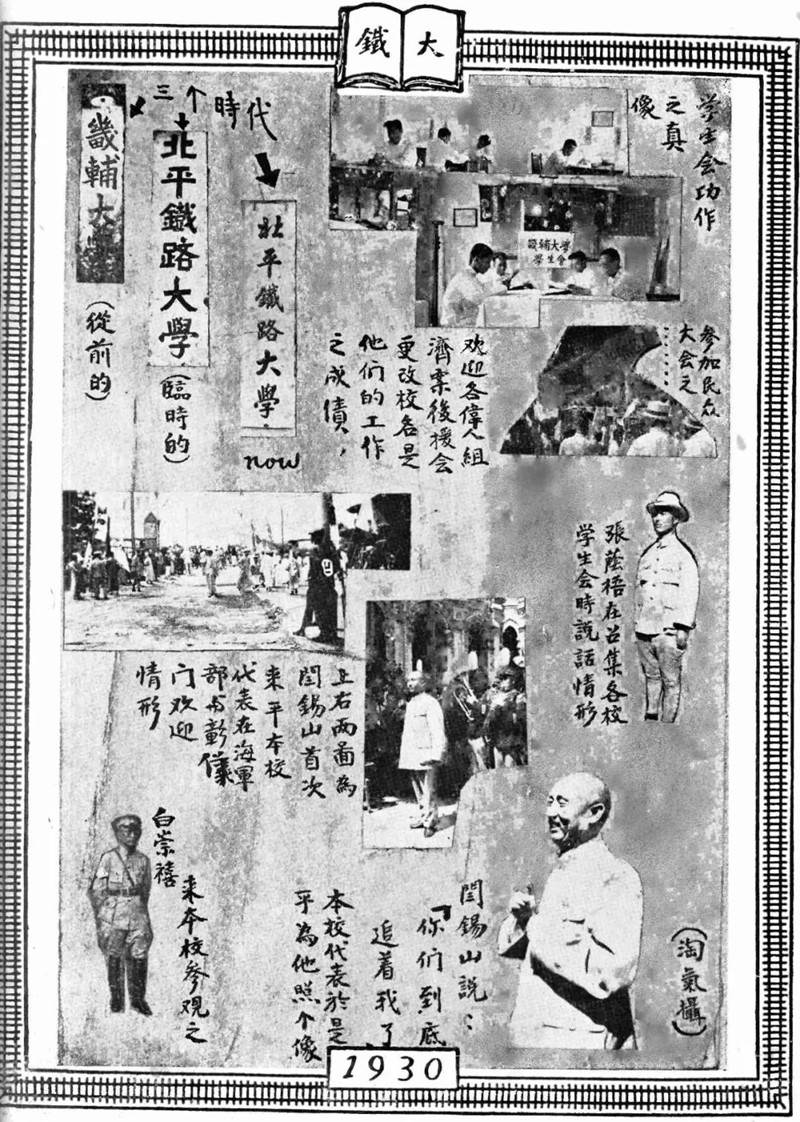 鐵大
三个時代
畿輔大學
(從前的)
北平鐵路大學
(臨時的)
北平鐵路大學
now
学生会功作
之真
像
畿輔大學
學生會
欢迎各偉人組
濟案後援会
更改校名是
他们的工作
之成债，
参加民众
大会之……
張蔭梧在召集各校
学生会時説話情形
上右两圖為
閻錫山首次
来平本校
代表在海軍
部与彰儀
门欢迎
情形
白崇禧
来本校参观之
閻錫山説：
「你们到底
追着我了」
本校代表於是
乎為他照个像
(淘氣攝)
1930